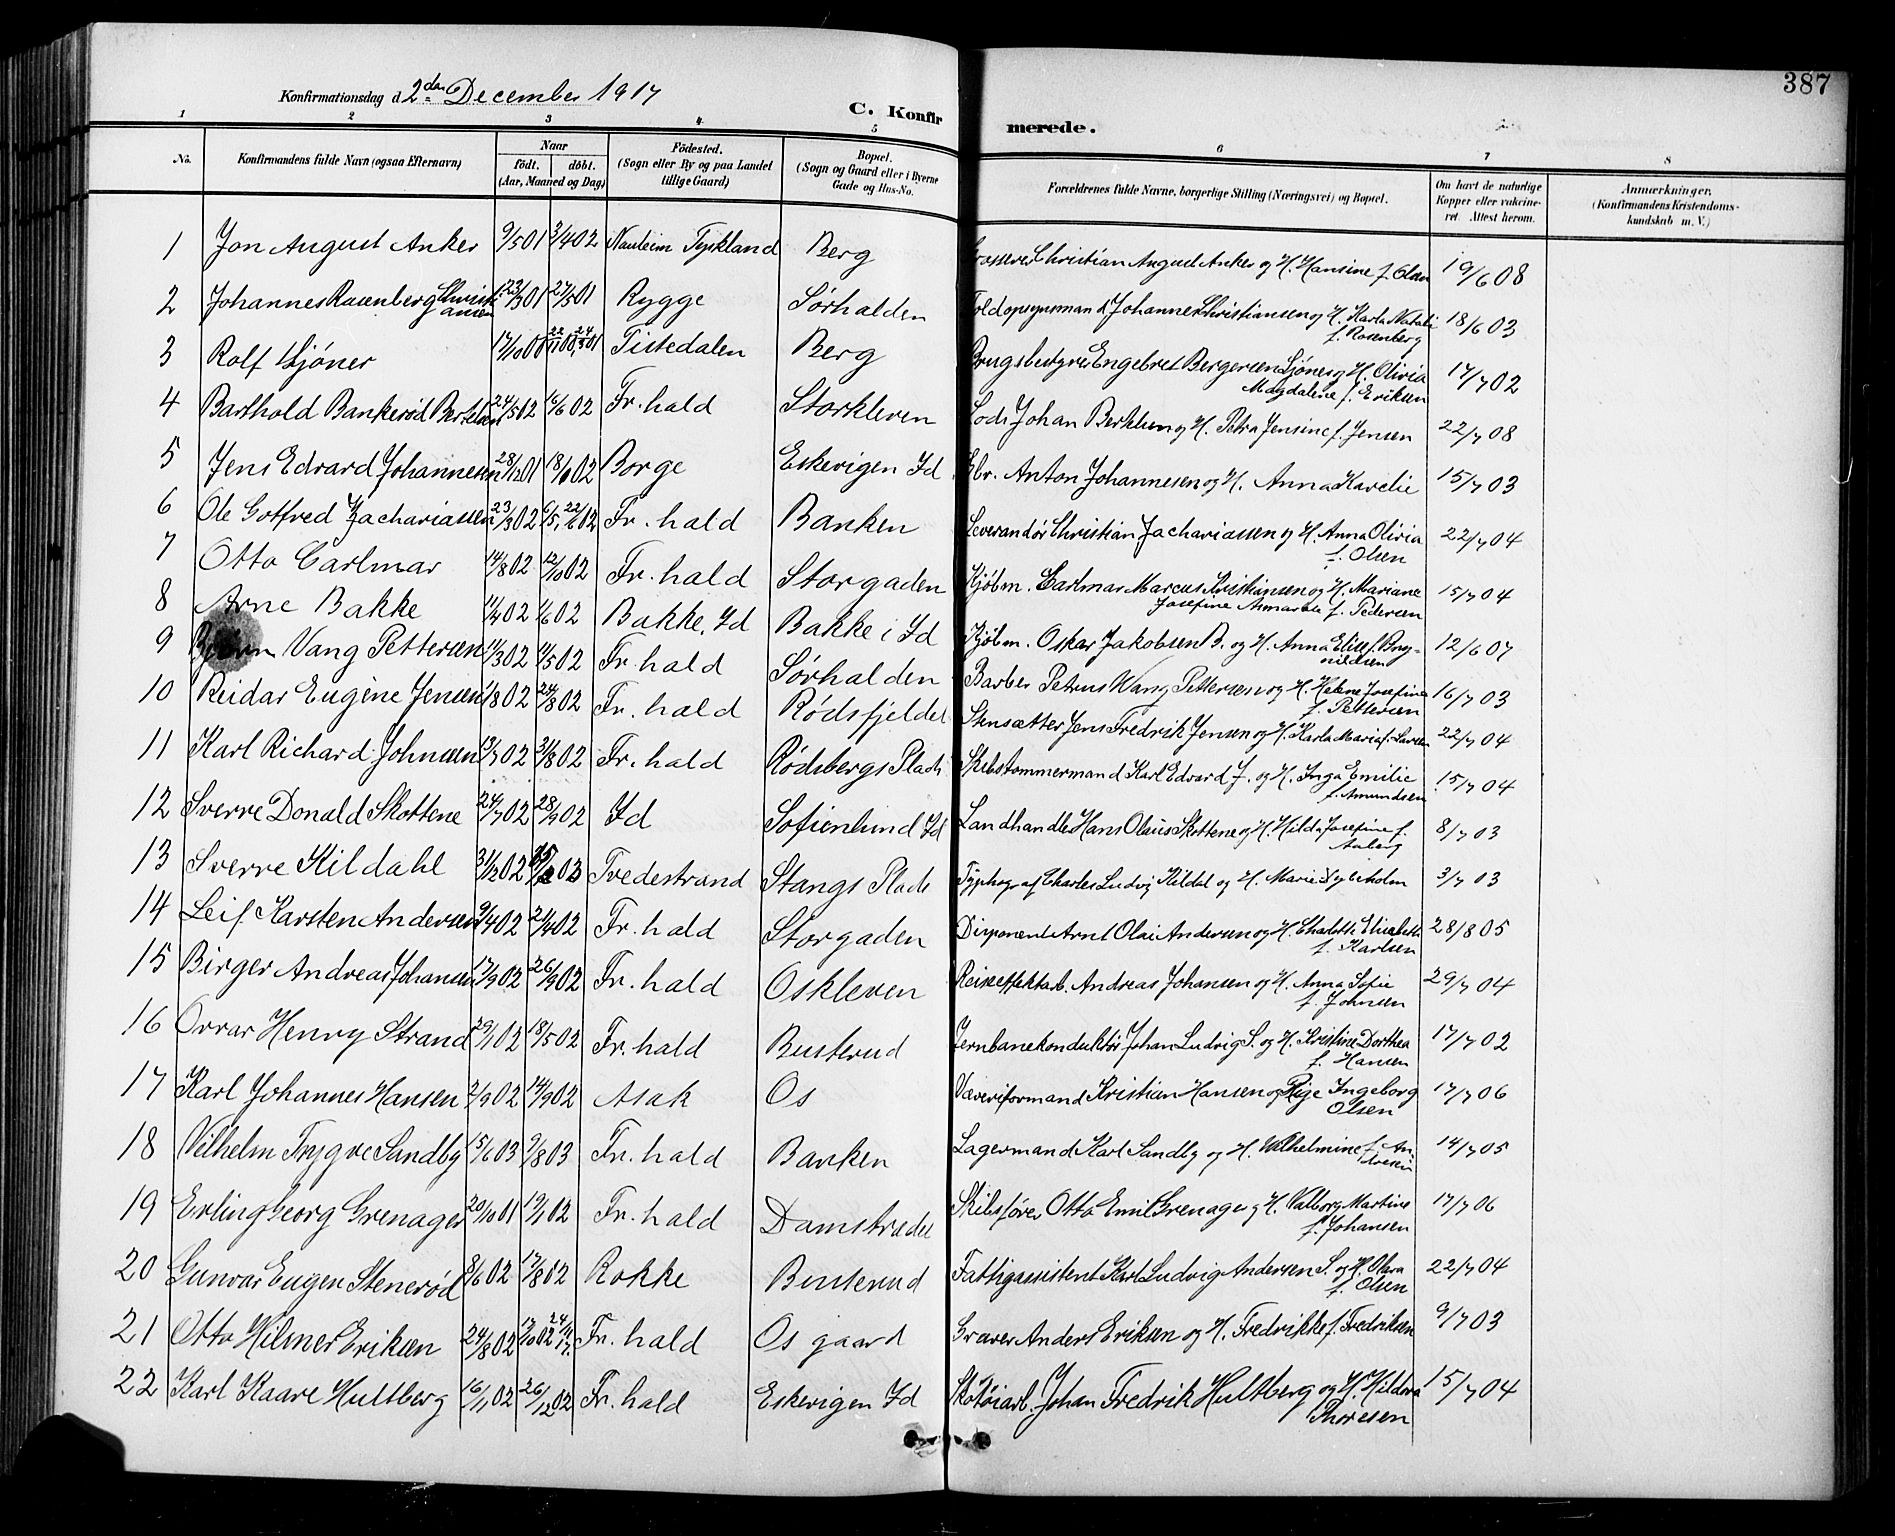 387
Konfirmationsdag d. 2den December 1917
C. Konfirmerede.
1 2 3 4 5 6 7 8
No. Konfirmandens fulde Navn (ogsaa Efternavn) Naar födt. döbt. (Aar, Maaned og Dag) Födested. (Sogn eller By og paa Landet tillige Gaard) Bopæl. (Sogn og Gaard eller i Byerne Gade og Hus-No. Forældrenes fulde Navne, borgerlige Stilling (Næringsvei) og Bopæl. Om havt de naturlige Kopper eller vakcineret. Attest herom. Anmærkninger. (Konfirmandens Kristendomskundskab m. V.)
1 Jon August Anker 9/5 01 3/4 02 Nauheim Tyskland Berg Grosserer Christian August Anker og H. Hansine f. Olsen 19/6 08
2 Johannes Rosenberg Christiansen 23/3 01 27/5 01 Rygge Sørhalden Toldopsynsmand Johannes Christiansen og H. Karla Natali f. Rosenberg 18/6 03
3 Rolf Sjöner 17/10 00 Tistedalen Berg Brugsbestyrer Engebret Bergersen Sjöner og H. Olivia Magdalene f. Eriksen 17/7 02
4 Barthold Bankerød Bertelsen 24/5 02 16/6 02 Fr. hald Storkleven Lods Johan Bertelsen og H. Petra Jensine f. Jensen 22/7 08
5 Jens Edvard Johannesen 28/12 01 Borge Eskevigen Id Arb. Anton Johannesen og H. Anna Karelie 15/7 03
6 Ole Gotfred Zachariassen 23/3 02 Fr. hald Banken Leverandør Christian Zachariassen og H. Anna Olivia f. Olsen 22/7 04
7 Otto Carlmar 14/8 02 12/10 02 Fr. hald Storgaden Kjøbm. Carlmar Marcus Kristiansen og H. Mariane Josefine Annarda f. Pedersen 15/7 04
8 Arne Bakke 11/4 02 1/6 02 Bakke, Id Bakke i Id Kjøbm. Oskar Jakobsen B. og H. Anna Elise f. Brynildsen 12/6 07
9 Bjørn Vang Pettersen 11/3 02 11/5 02 Fr. hald Sørhalden Barber Petrus Wang Pettersen og H. Helene Josefine f. Pettersen 16/7 03
10 Reidar Eugène Jensen 1/8 02 24/8 02 Fr. hald Rødsfjeldet Stensætter Jens Fredrik Jensen og H. Karla Maria f. Larsen 22/7 04
11 Karl Richard Johnsen 13/7 02 31/8 02 Fr. hald Rødsbergs Plads Skibstømmermand Karl Edvard J. og H. Inga Emilie f. Amundsen 15/7 04
12 Sverre Donald Skottene 24/7 02 28/9 02 Id Sofienlund Id Landhandler Hans Olaus Skottene og H. Hilda Josefine f. Aaberg 8/7 03
13 Sverre Kildahl 31/12 02 Tvedestrand Stangs Plads Typhograf Charles Ludvig Kildal og H. Marie 3/7 03
14 Leif Karsten Andersen 9/4 02 21/4 02 Fr. hald Storgaden Disponent Arnt Olai Andersen og H. Charlotte Elisabeth f. Karlsen 28/8 05
15 Birger Andreas Johansen 17/9 02 26/9 02 Fr. hald Oskleven Reiseeffektarb. Andreas Johansen og H. Anna Sofie f. Johnsen 29/7 04
16 Orvar Henry Strand 29/1 02 18/5 02 Fr. hald Busterud Jernbanekonduktör Johan Ludvig S. og H. Kristine Dorthea f. Hansen 17/7 02
17 Karl Johannes Hansen 2/9 02 14/9 02 Asak Os Væveriformand Kristian Hansen og Pige Ingeborg Olsen 17/7 06
18 Vilhelm Trygve Sandby 15/6 03 9/8 03 Fr. hald Banken Lagermand Karl Sandby og H. Wilhelmine f. Andresen 14/7 05
19 Erling Georg Grenager 20/10 01 19/1 02 Fr. hald Damstrædet Skibsfører Otto Emil Grenager og H. Valborg Martine f. Johansen 17/7 06
20 Gunvar Eugen Stenerød 8/6 02 17/8 02 Rokke Busterud Fattigassistent Karl Ludvig Andersen S. og H. Olava f. Olsen 22/7 04
21 Otto Hilmer Eriksen 24/8 02 Fr. hald Os gaard Graver Anders Eriksen og H. Fredrikke f. Fredriksen 9/7 03
22 Karl Kaare Hultberg 16/11 02 26/12 02 Fr. hald Eskevigen Id Skotøiarb. Johan Fredrik Hultberg og H. Hildora Thoresen 15/7 04